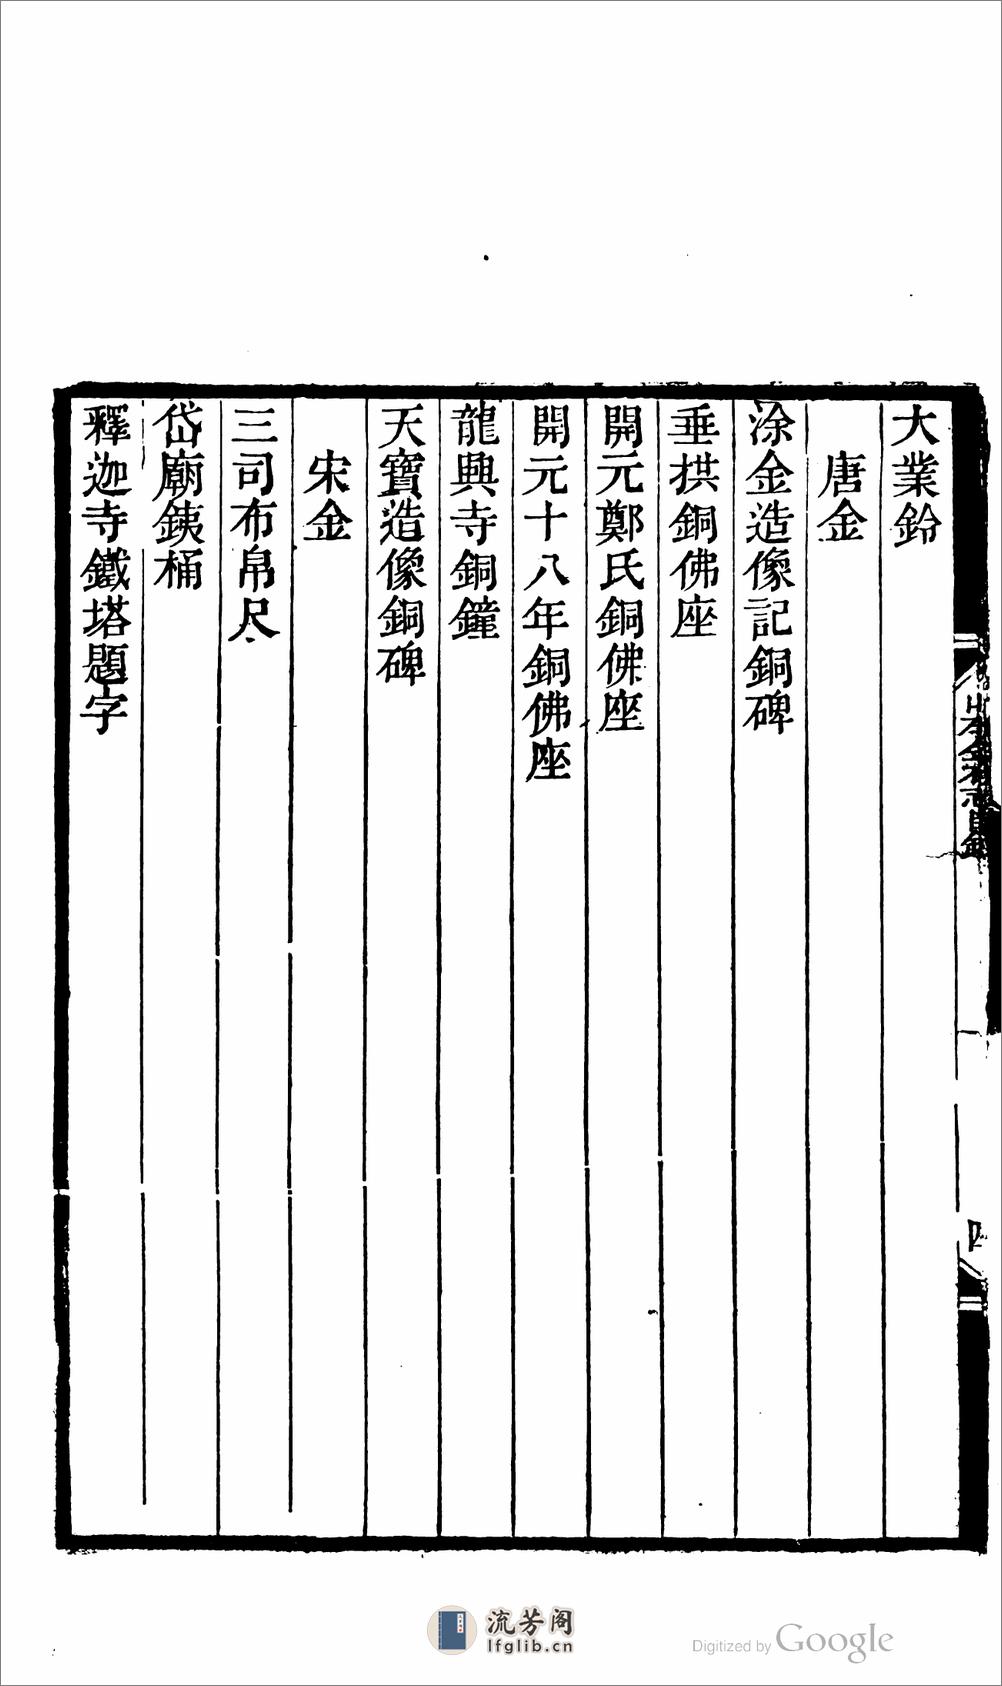 大業鈴
唐金
涂金造像記銅碑
垂拱銅佛座
開元鄭氏銅佛座
開元十八年銅佛座
龍興寺銅鐘
天寶造像銅碑
宋金
三司布帛尺
岱廟銕桶
釋迦寺鐵塔題字
流芳阁
lfglib.cn
Digitized by Google